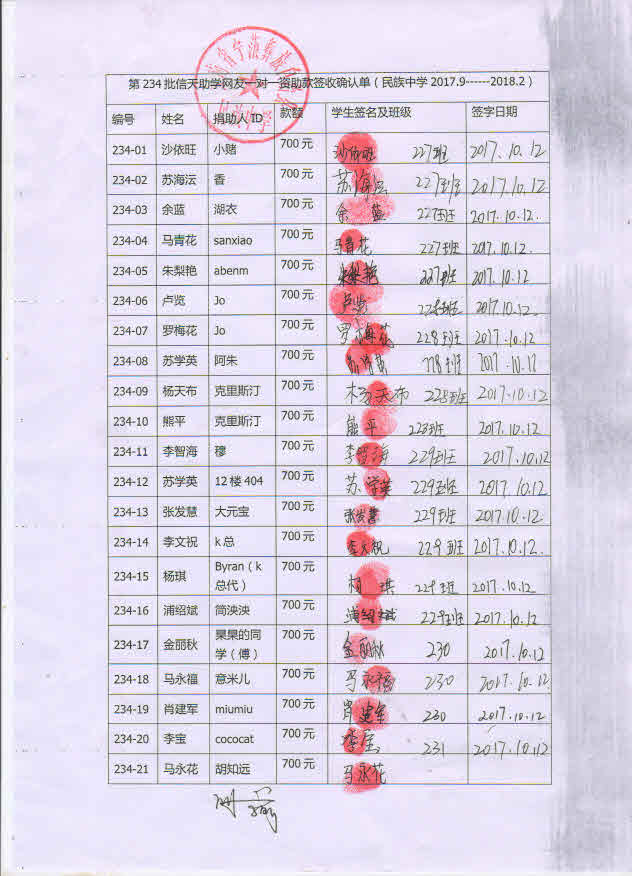 第 234 批信天助学网友一对一资助款签收确认单（民族中学 2017.9------2018.2）
编号 姓名 捐助人 ID 款额 学生签名及班级 签字日期
234-01 沙依旺 小赌 700 元 沙依旺 227班 2017.10.12
234-02 苏海沄 香 700 元 苏海沄 227班 2017.10.12
234-03 余蓝 湖衣 700 元 余蓝 227班 2017.10.12.
234-04 马青花 sanxiao 700 元 马青花 227班 2017.10.12
234-05 朱梨艳 abenm 700 元 朱梨艳 227班 2017.10.12
234-06 卢览 Jo 700 元 卢览 228班 2017.10.12.
234-07 罗梅花 Jo 700 元 罗梅花 228班 2017.10.12
234-08 苏学英 阿朱 700 元 228班 2017.10.12
234-09 杨天布 克里斯汀 700 元 杨天布 228班 2017.10.12
234-10 熊平 克里斯汀 700 元 熊平 228班 2017.10.12
234-11 李智海 穆 700 元 李智海 229班 2017.10.12
234-12 苏学英 12 楼 404 700 元 苏学英 229班 2017.10.12
234-13 张发慧 大元宝 700 元 张发慧 229班 2017.10.12
234-14 李文祝 k 总 700 元 李文祝 229班 2017.10.12.
234-15 杨琪 Byran（k 总代） 700 元 杨琪 229班 2017.10.12
234-16 浦绍斌 简泱泱 700 元 浦绍斌 229班 2017.10.12
234-17 金丽秋 杲杲的同学（傅） 700 元 金丽秋 230 2017.10.12
234-18 马永福 意米儿 700 元 马永福 230 2017.10.12
234-19 肖建军 miumiu 700 元 肖建军 230 2017.10.12
234-20 李宝 cococat 700 元 李宝 231 2017.10.12
234-21 马永花 胡知远 700 元 马永花